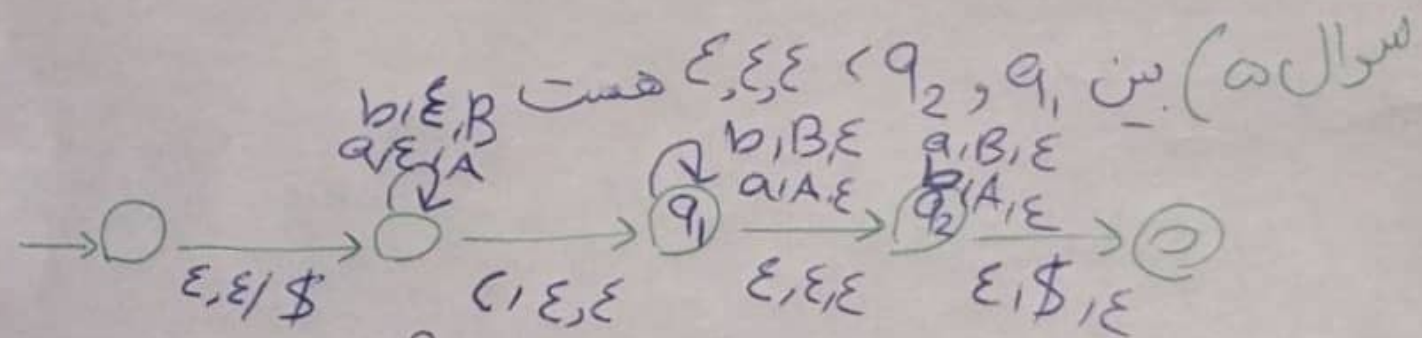 سوال ۵) بین q₁ و q₂ ، ε,ε,ε هست
b,ε,B
a,ε,A
b,B,ε
a,A,ε
a,B,ε
b,A,ε
q₁
q₂
ε,ε/$
c,ε,ε
ε,ε,ε
ε,$,ε